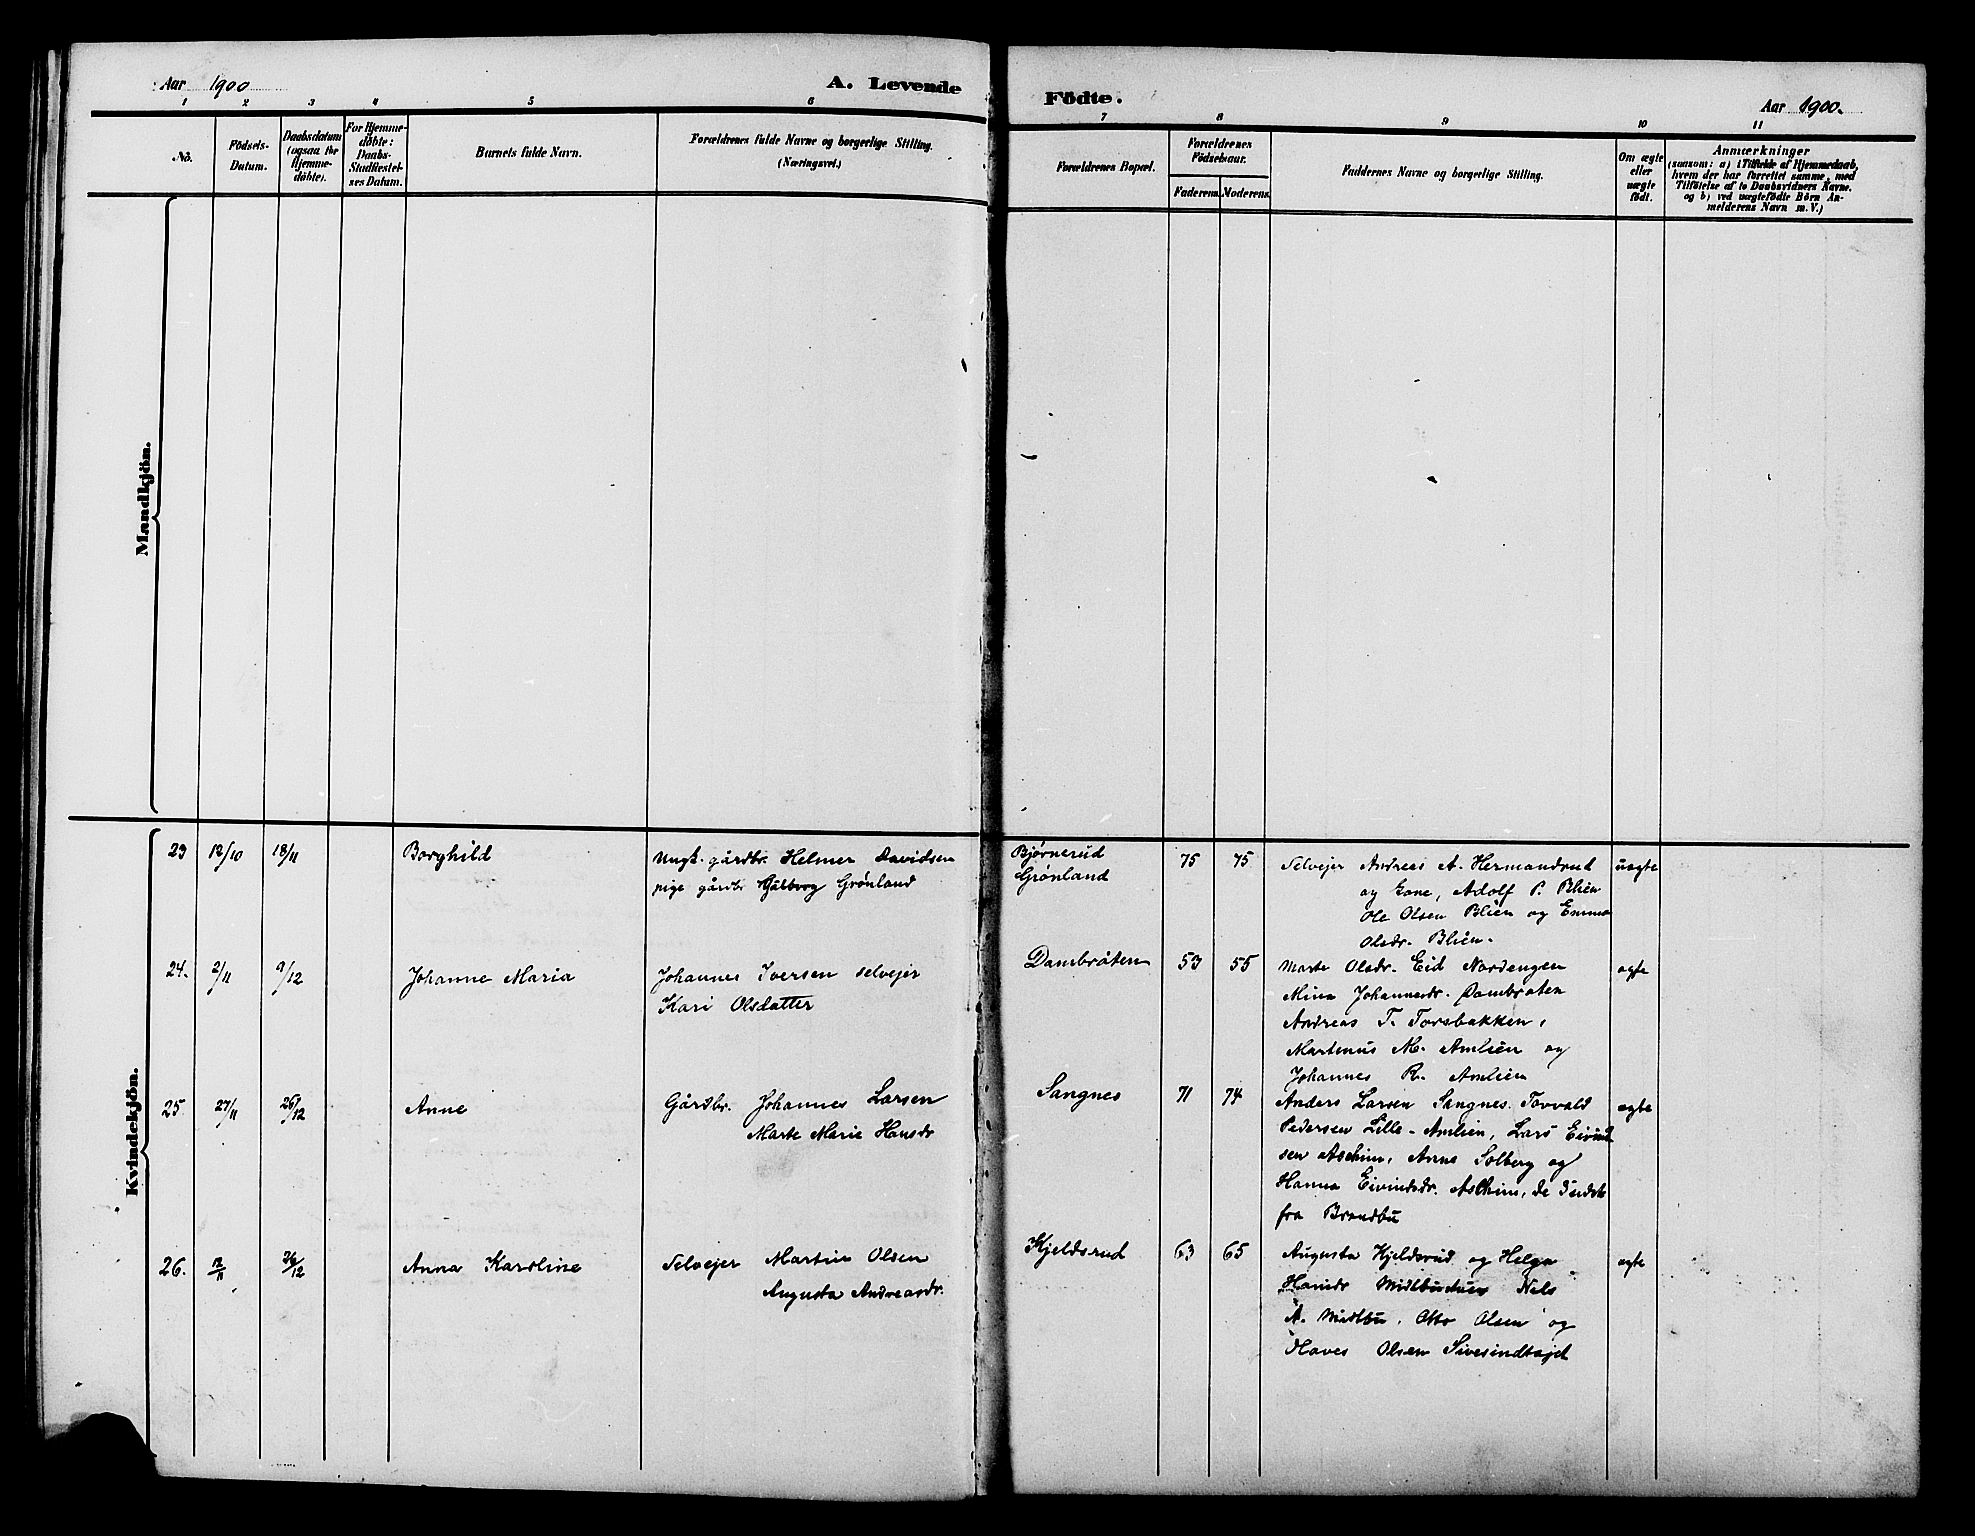 Aar 1900
A. Levende
Födte.
Aar 1900.
1 2 3 4 5 6 7 8 9 10 11
No.
Födsels-
Datum.
Daabsdatum
(ogsaa for
Hjemme-
döbte).
For Hjemme-
döbte:
Daabs-
Stadfæstel-
ses Datum.
Barnets fulde Navn.
Forældrenes fulde Navne og borgerlige Stilling.
(Næringsvei.)
Forældrenes Bopæl.
Forældrenes
Födselsaar.
Faderens. Moderens.
Faddernes Navne og borgerlige Stilling.
Om ægte
eller
uægte
født.
Anmærkninger
(saasom: a) i Tilfælde af Hjemmedaab,
hvem der har forrettet samme, med
Tilföielse af to Daabsvidners Navne.
og b) ved uægtefödte Börn An-
melderens Navn m. V.)
Mandkjön.
Kvindekjön.
23 12/10 18/11 Borghild Ungk. gårdbr. Helmer Davidsen Bjørnerud 75 75 Selvejer Andreas A. Hermandrud uægte
pige gårdbr Gølborg Grønland Grønland og Kone, Adolf P. Blien
Ole Olsen Blien og Emma
Olsdr. Blien.
24. 2/11 9/12 Johanne Maria Johannes Iversen selvejer Dambråten 53 55 Marte Olsdr. Eid Nordengen ægte
Kari Olsdatter Mina Johannesdr. Dambraten
Andreas T. Torsbakken,
Martinus M. Amlien og
Johannes R. Amlien
25. 27/11 26/12 Anne Gårdbr. Johannes Larsen Sangnes 71 74 Anders Larsen Sangnes. Torvald ægte
Marte Marie Hansdr Pedersen Lille-Amlien, Lars Eivind
sen Aschim, Anne Solberg og
Hanna Eivindsdr. Aschim, de 3 sidste
fra Brandbu
26. 12/11 26/12 Anna Karoline Selvejer Martin Olsen Kjeldsrud 63 65 Augusta Kjeldsrud og Helga ægte
Augusta Andreasdr. Hansdr Nels
A. Midtbu, Otto Olsen og
Olsen